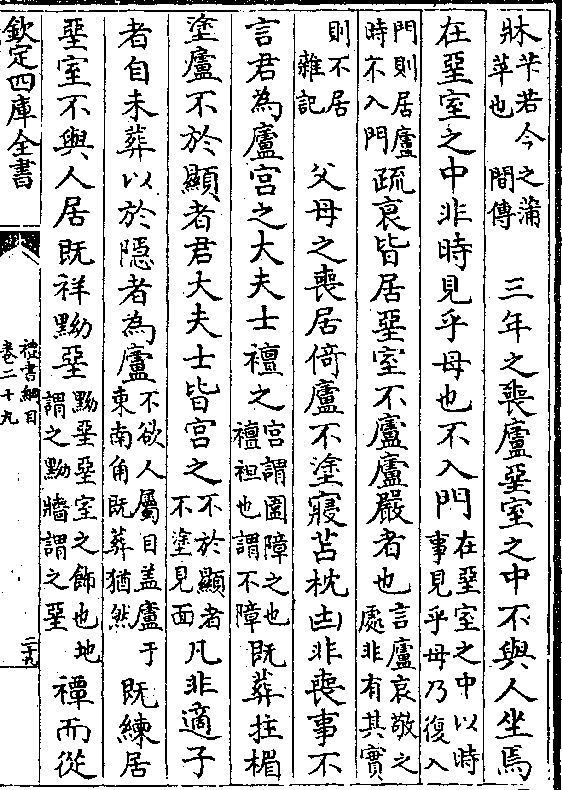 牀芐若今之蒲苹也間傳　三年之喪廬堊室之中不與人坐焉
在堊室之中非時見乎母也不入門在堊室之中以時事見乎母乃復入
門則居廬時不入門疏衰皆居堊室不廬廬嚴者也言廬哀敬之處非有其實
則不居雜記　父母之喪居倚廬不塗寢苫枕凷非喪事不
言君為廬宮之大夫士襢之宮謂圍障之也襢袒也謂不障既葬拄楣
塗廬不於顯者君大夫士皆宮之不於顯者不塗見面凡非適子
者自未葬以於隱者為廬不欲人屬目盖廬于東南角既葬猶然既練居
堊室不與人居既祥黝堊黝堊堊室之飾也地謂之黝牆謂之堊禫而從
欽定四庫全書
禮書綱目
卷二十九
二十九